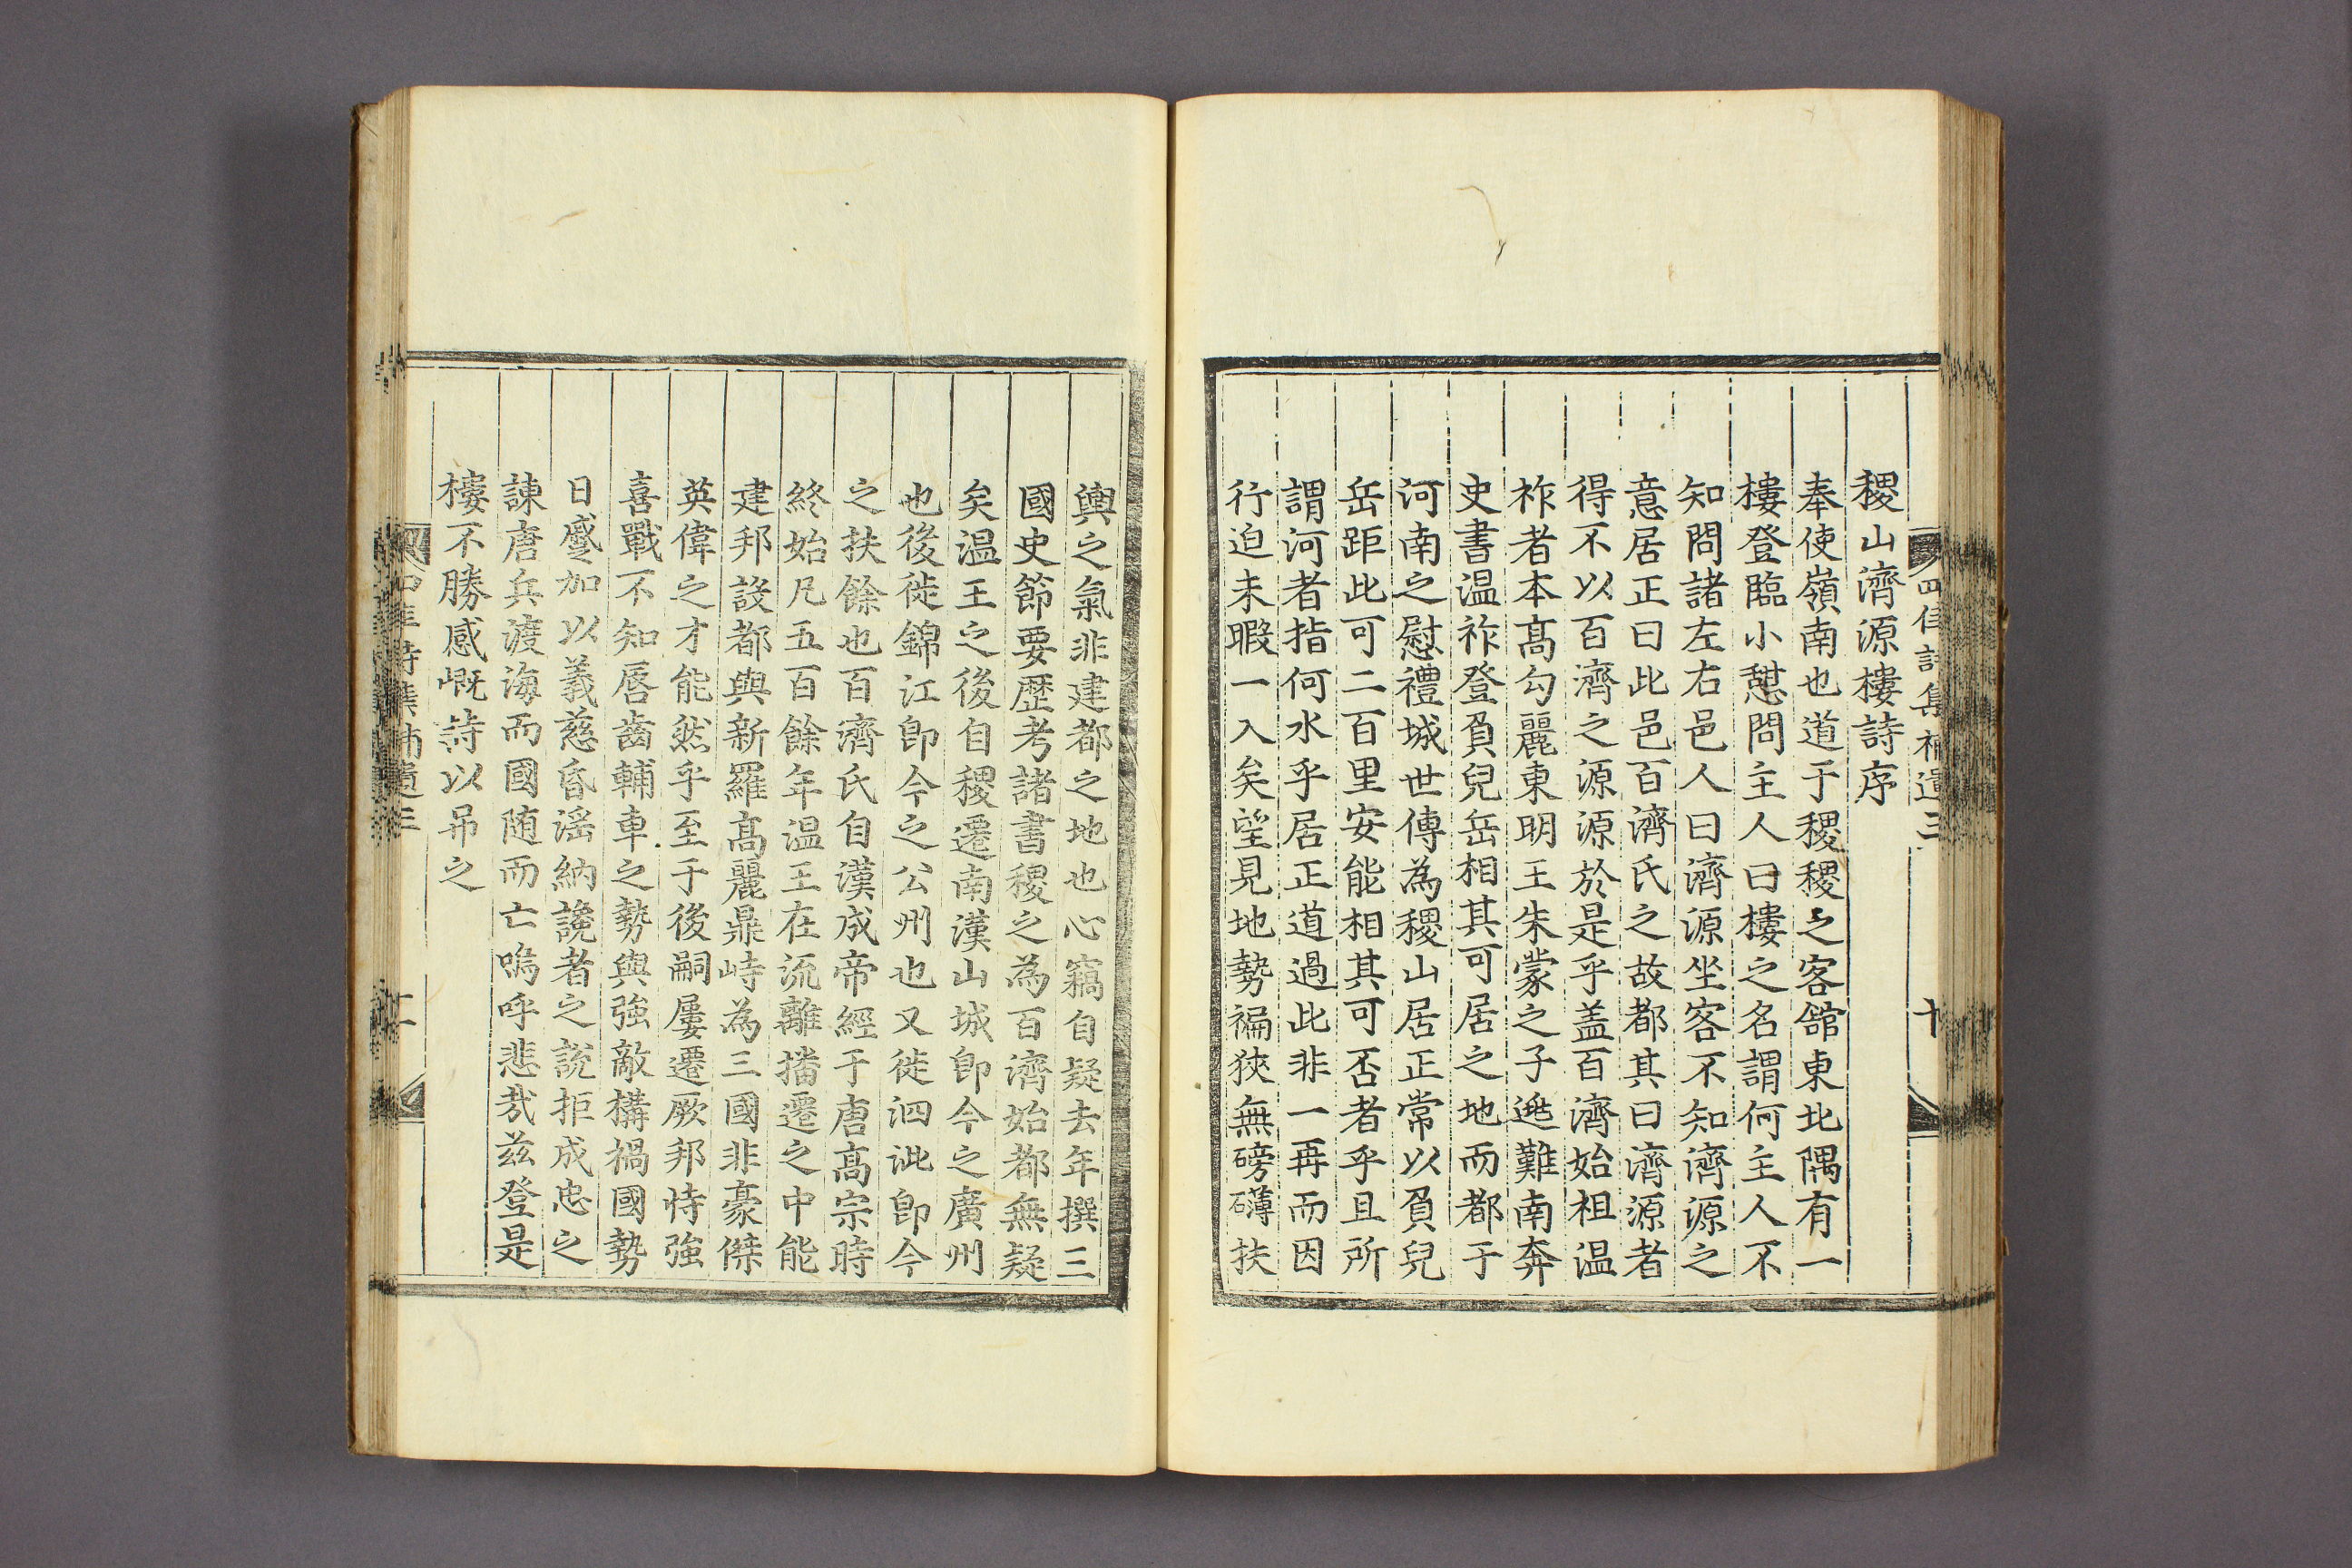 四佳詩集補遺三
十
稷山濟源樓詩序
奉使嶺南也道于稷稷之客舘東北隅有一
樓登臨小憇問主人曰樓之名謂何主人不
知問諸左右邑人曰濟源坐客不知濟源之
意居正曰此邑百濟氏之故都其曰濟源者
得不以百濟之源源於是乎盖百濟始祖温
祚者本髙勾麗東明王朱蒙之子逃難南奔
史書温祚登負兒岳相其可居之地而都于
河南之慰禮城世傳為稷山居正常以負兒
岳距此可二百里安能相其可否者乎且所
謂河者指何水乎居正道過此非一再而因
行迫未暇一入矣望見地勢褊狹無磅礴扶
輿之氣非建都之地也心竊自疑去年撰三
國史節要歷考諸書稷之為百濟始都無疑
矣温王之後自稷遷南漢山城即今之廣州
也後徙錦江即今之公州也又徙泗沘即今
之扶餘也百濟氏自漢成帝經于唐髙宗時
終始凡五百餘年温王在流離播遷之中能
建邦設都與新羅髙麗鼎峙為三國非豪傑
英偉之才能然乎至于後嗣屢遷厥邦恃強
喜戰不知唇齒輔車之勢與強敵構禍國勢
日蹙加以義慈昏滛納讒者之說拒成忠之
諫唐兵渡海而國随而亡嗚呼悲㢤茲登是
樓不勝感嘅詩以吊之
四佳詩集補遺三